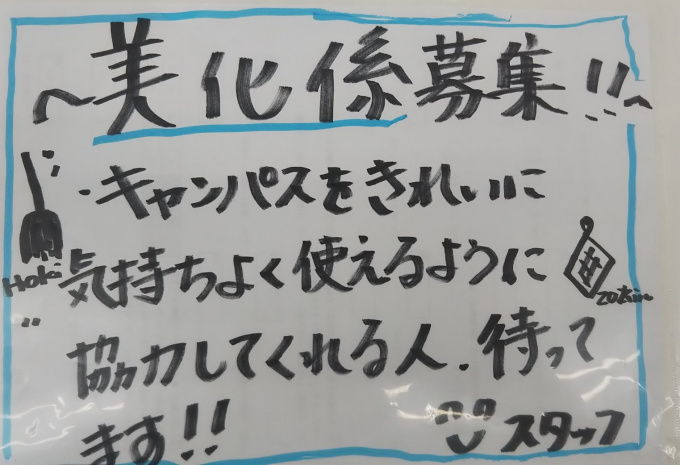 〜美化係募集!!〜
・キャンパスをきれいに
Hoki
気持ちよく使えるように
協力してくれる人、待って
ます!!
スタッフ